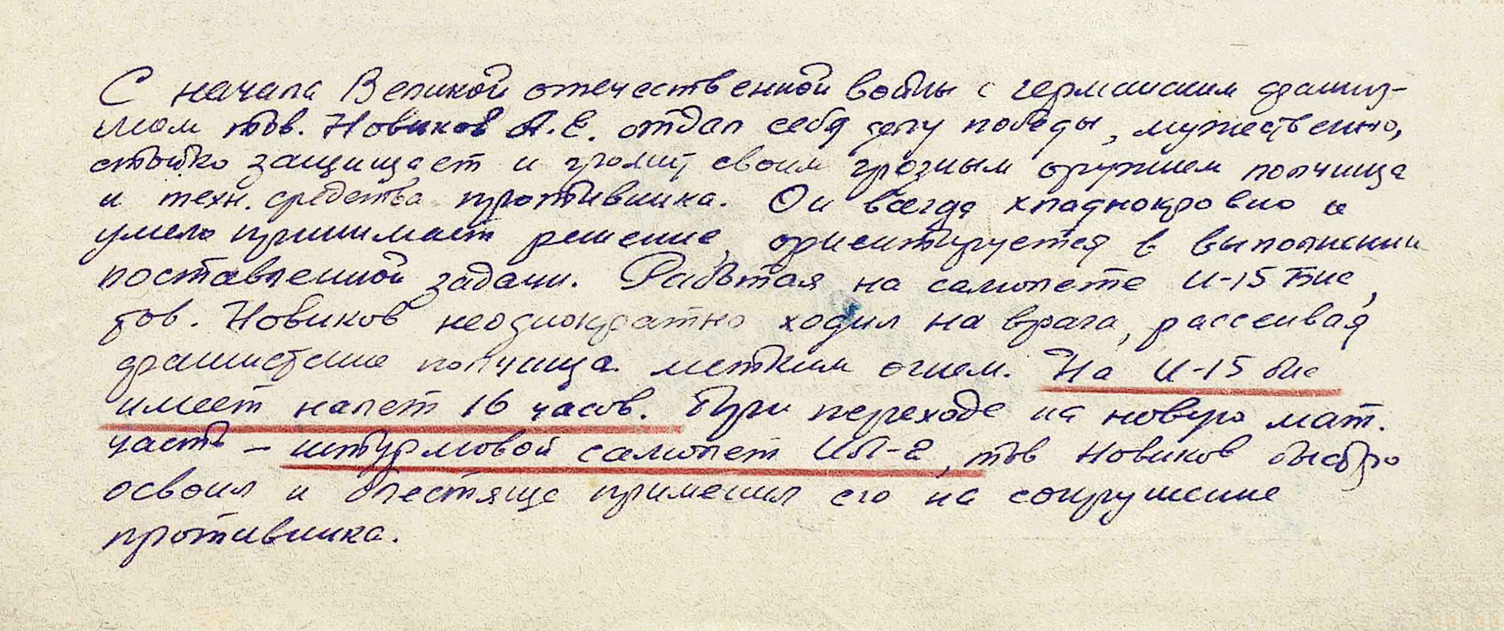 С начала Великой отечественной войны с германским фашиз-
мом тов. Новиков А.Е. отдал себя делу победы, мужественно,
стойко защищает и громит своим грозным оружием полчища
и техн. средства противника. Он всегда хладнокровно и
умело принимает решение, ориентируется в выполнении
поставленной задачи. Работая на самолете И-15 Бис,
тов. Новиков неоднократно ходил на врага, рассеивая
фашистские полчища метким огнем. На И-15 бис
имеет налет 16 часов. При переходе на новую мат.
часть – штурмовой самолет ИЛ-2, тов Новиков быстро
освоил и блестяще применил его на сокрушение
противника.